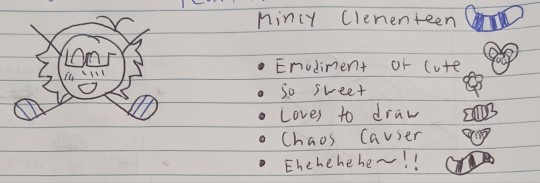 Mincy Clementeen
• Emodiment of cute
• So sweet
• Loves to draw
• Chaos Causer
• Ehehehehe~!!